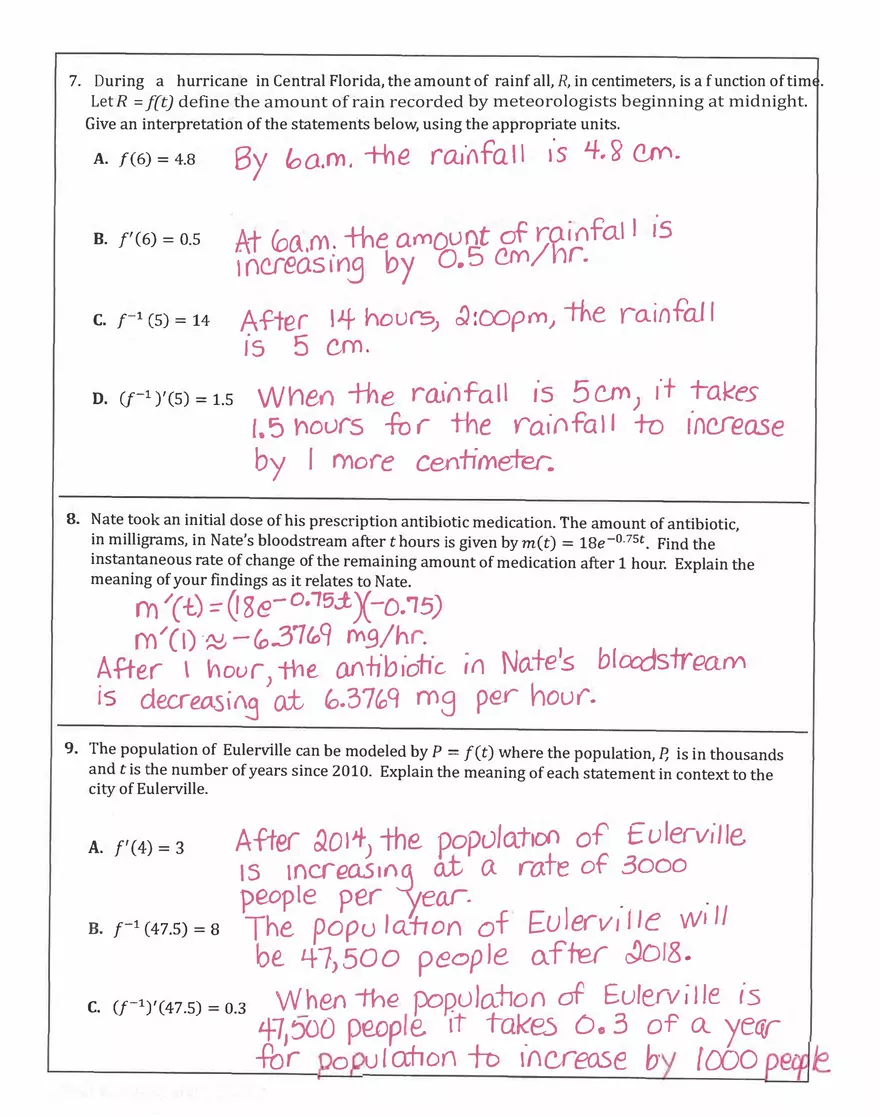 7. During a hurricane in Central Florida, the amount of rainf all, R, in centimeters, is a f unction of time.
Let R = f(t) define the amount of rain recorded by meteorologists beginning at midnight.
Give an interpretation of the statements below, using the appropriate units.
A. f(6) = 4.8 By 6a.m. the rainfall is 4.8 cm.
B. f′(6) = 0.5 At 6a.m. the amount of rainfall is
increasing by 0.5 cm/hr.
C. f⁻¹ (5) = 14 After 14 hours, 2:00pm, the rainfall
is 5 cm.
D. (f⁻¹ )′(5) = 1.5 When the rainfall is 5cm, it takes
1.5 hours for the rainfall to increase
by 1 more centimeter.
8. Nate took an initial dose of his prescription antibiotic medication. The amount of antibiotic,
in milligrams, in Nate's bloodstream after t hours is given by m(t) = 18e⁻⁰·⁷⁵ᵗ. Find the
instantaneous rate of change of the remaining amount of medication after 1 hour. Explain the
meaning of your findings as it relates to Nate.
m′(t) = (18e⁻⁰·⁷⁵ᵗ)(-0.75)
m′(1) ≈ -6.3769 mg/hr.
After 1 hour, the antibiotic in Nate's bloodstream
is decreasing at 6.3769 mg per hour.
9. The population of Eulerville can be modeled by P = f(t) where the population, P, is in thousands
and t is the number of years since 2010. Explain the meaning of each statement in context to the
city of Eulerville.
A. f′(4) = 3 After 2014, the population of Eulerville
is increasing at a rate of 3000
people per year.
B. f⁻¹ (47.5) = 8 The population of Eulerville will
be 47,500 people after 2018.
C. (f⁻¹)′(47.5) = 0.3 When the population of Eulerville is
47,500 people it takes 0.3 of a year
for population to increase by 1000 people